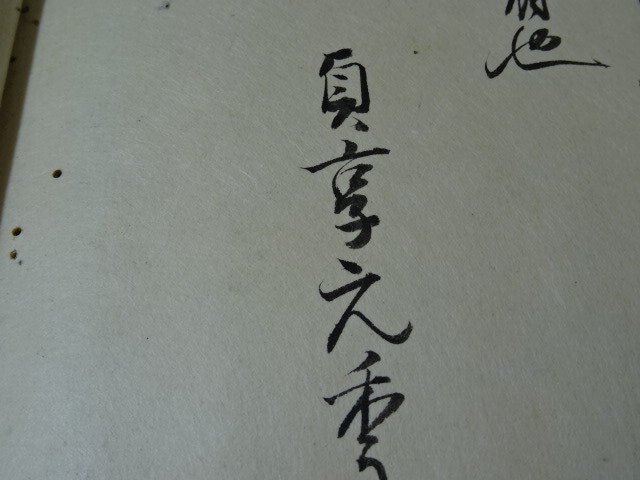 也
貞享元季